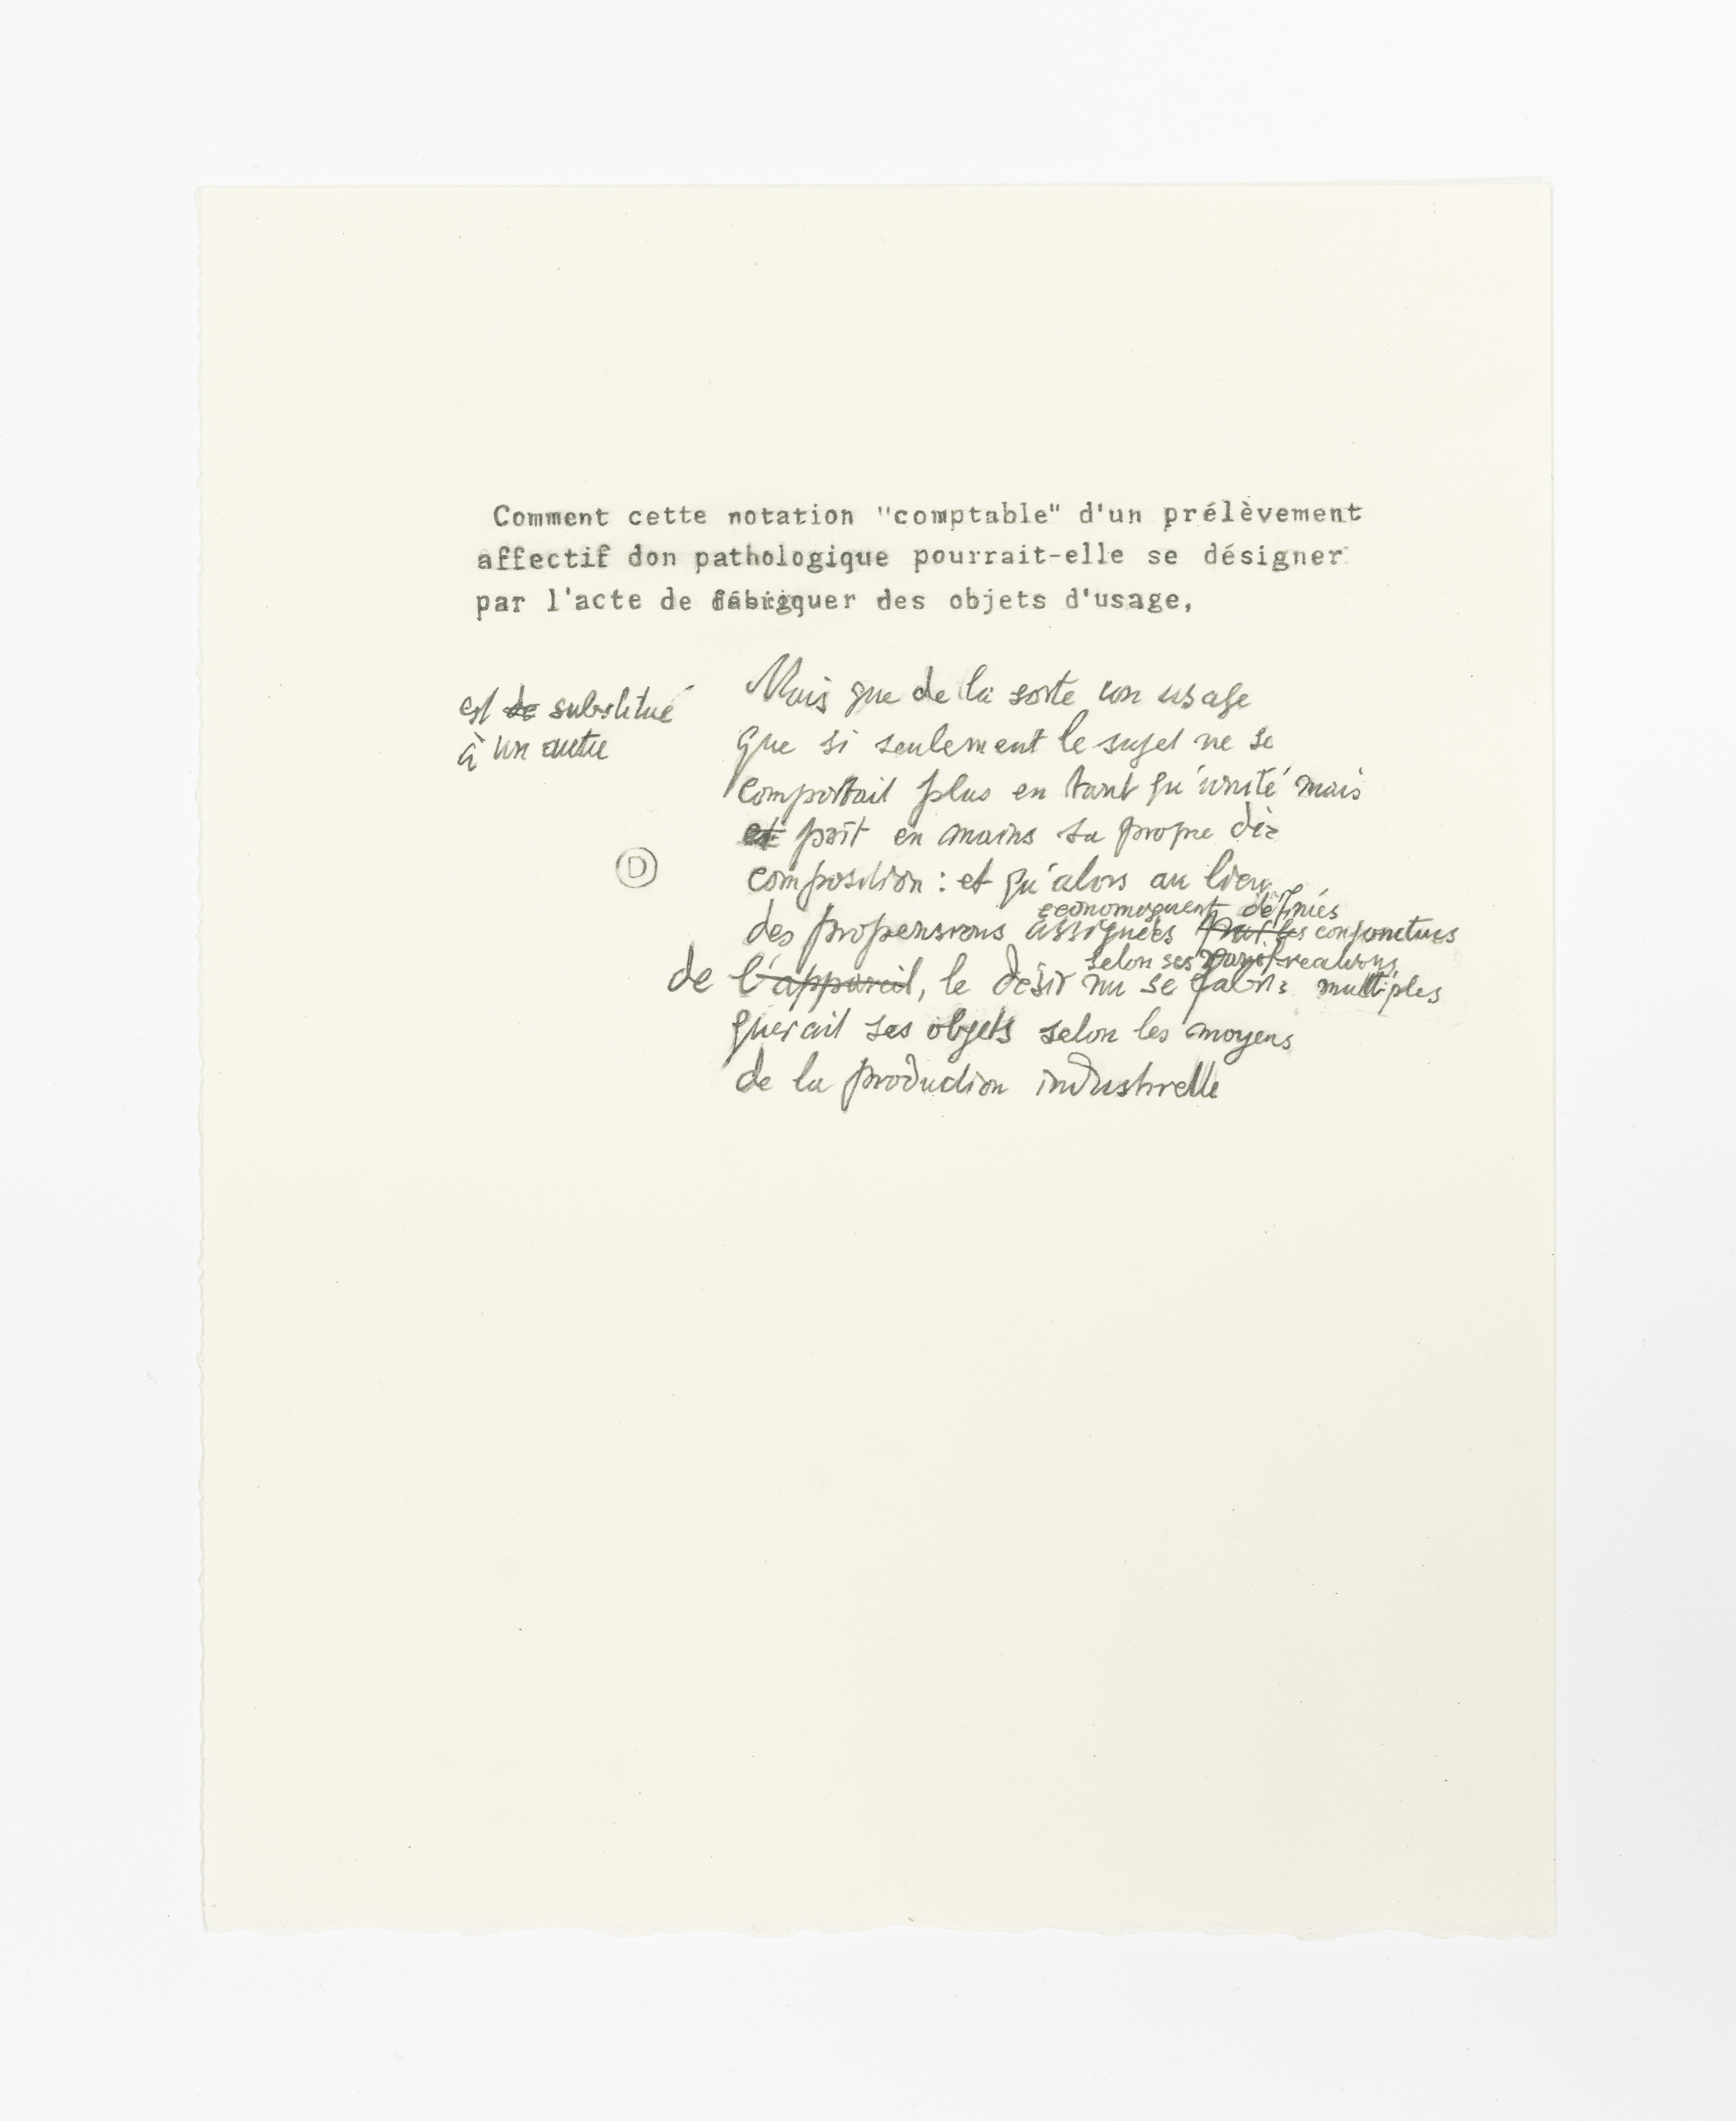 Comment cette notation "comptable" d'un prélèvement
affectif don pathologique pourrait-elle se désigner
par l'acte de fabriquer des objets d'usage,
Mais que de la sorte un usage
est de substitué
à un autre
que si seulement le sujet ne se
comportait plus en tant qu'unité mais
et prît en mains sa propre dé=
D
composition : et qu'alors au lieu
économiquement définies
des propensions assignées par les conjonctures
selon ses
de l'appareil, le désir nu se fabri= multiples
querait ses objets selon les moyens
de la production industrielle